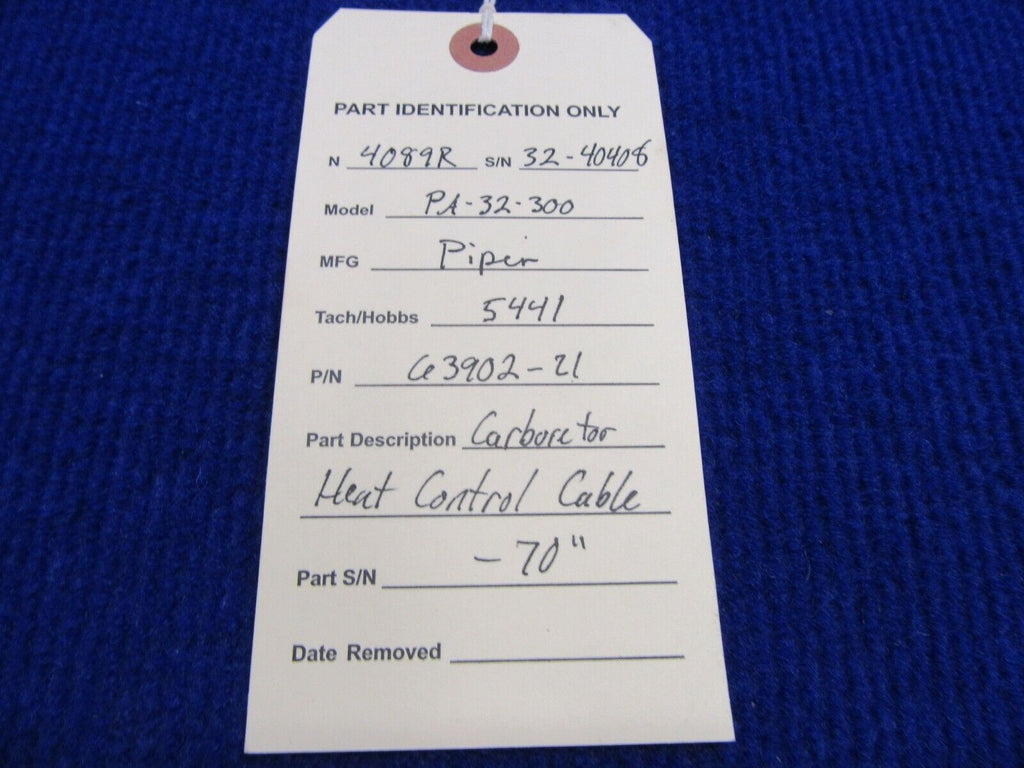 PART IDENTIFICATION ONLY
N 4089R S/N 32-40408
Model PA-32-300
MFG Piper
Tach/Hobbs 5441
P/N 63902-21
Part Description Carboretor
Heat Control Cable
Part S/N - 70"
Date Removed